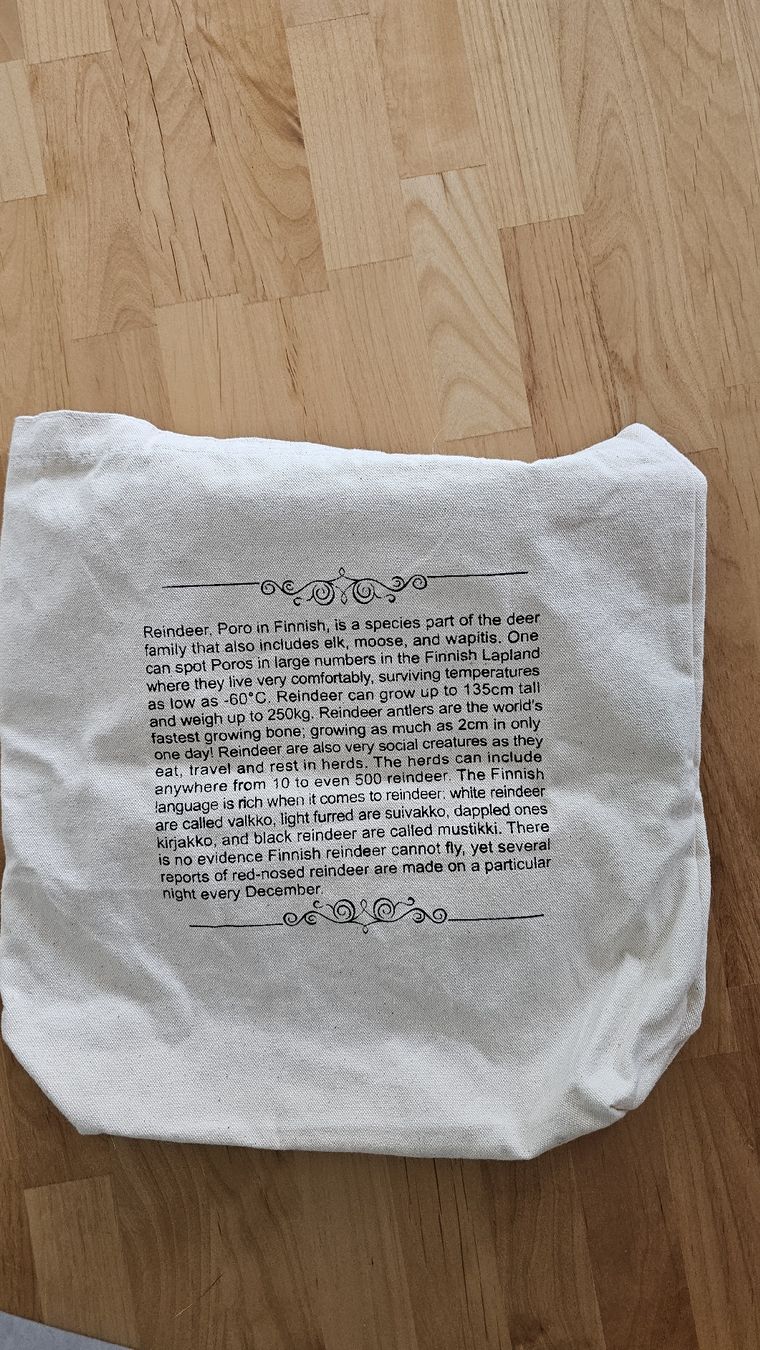 Reindeer, Poro in Finnish, is a species part of the deer
family that also includes elk, moose, and wapitis. One
can spot Poros in large numbers in the Finnish Lapland
where they live very comfortably, surviving temperatures
as low as -60°C. Reindeer can grow up to 135cm tall
and weigh up to 250kg. Reindeer antlers are the world's
fastest growing bone; growing as much as 2cm in only
one day! Reindeer are also very social creatures as they
eat, travel and rest in herds. The herds can include
anywhere from 10 to even 500 reindeer. The Finnish
language is rich when it comes to reindeer; white reindeer
are called valkko, light furred are suivakko, dappled ones
kirjakko, and black reindeer are called mustikki. There
is no evidence Finnish reindeer cannot fly, yet several
reports of red-nosed reindeer are made on a particular
night every December.